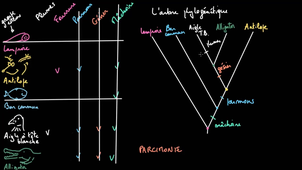 Plumes
Fourrure
Poumons
Gésier
Mâchoire
Lamproie
Antilope
Bar commun
Aigle à tête
blanche
Alligator
L'arbre phylogénétique
Lamproie
Bar
commun
Aigle
T.B.
Alligator
Antilope
Plumes
gésier
poumons
mâchoire
PARCIMONIE